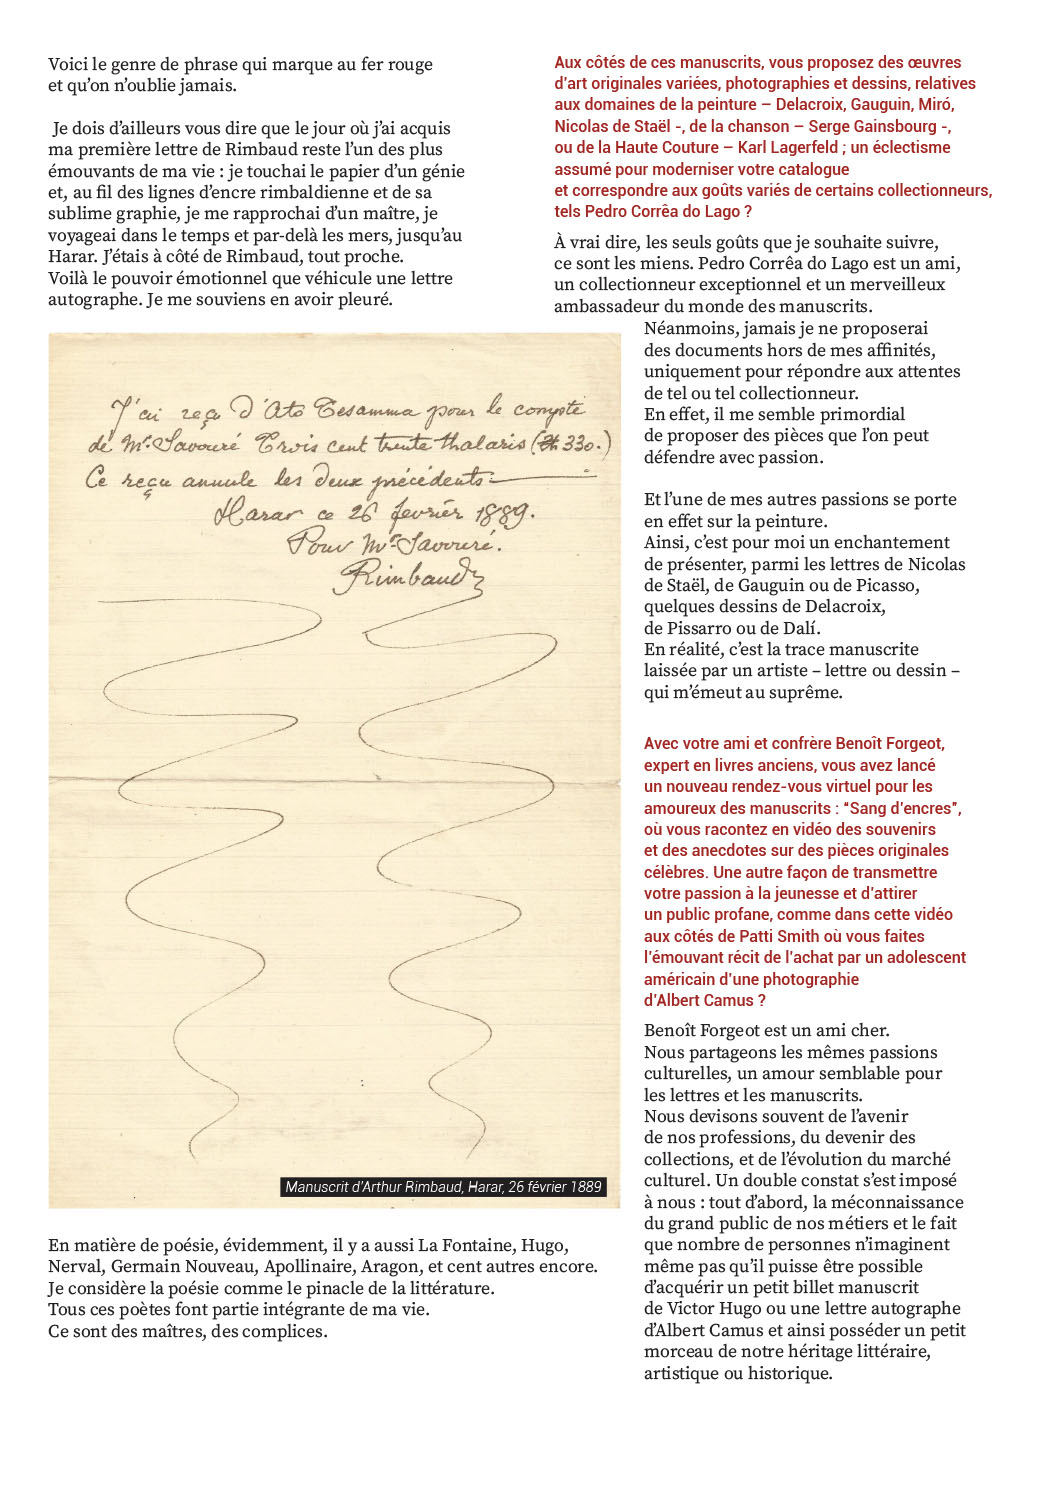 Voici le genre de phrase qui marque au fer rouge
et qu’on n’oublie jamais.
Je dois d’ailleurs vous dire que le jour où j’ai acquis
ma première lettre de Rimbaud reste l’un des plus
émouvants de ma vie : je touchai le papier d’un génie
et, au fil des lignes d’encre rimbaldienne et de sa
sublime graphie, je me rapprochai d’un maître, je
voyageai dans le temps et par-delà les mers, jusqu’au
Harar. J’étais à côté de Rimbaud, tout proche.
Voilà le pouvoir émotionnel que véhicule une lettre
autographe. Je me souviens en avoir pleuré.
J'ai reçu d'Ato Tesamma pour le compte
de Mr. Savouré Trois cent trente thalaris (Th 330.)
Ce reçu annule les deux précédents
Harar ce 26 février 1889.
Pour Mr Savouré.
Rimbaud
Manuscrit d’Arthur Rimbaud, Harar, 26 février 1889
En matière de poésie, évidemment, il y a aussi La Fontaine, Hugo,
Nerval, Germain Nouveau, Apollinaire, Aragon, et cent autres encore.
Je considère la poésie comme le pinacle de la littérature.
Tous ces poètes font partie intégrante de ma vie.
Ce sont des maîtres, des complices.
Aux côtés de ces manuscrits, vous proposez des œuvres
d’art originales variées, photographies et dessins, relatives
aux domaines de la peinture – Delacroix, Gauguin, Miró,
Nicolas de Staël -, de la chanson – Serge Gainsbourg -,
ou de la Haute Couture – Karl Lagerfeld ; un éclectisme
assumé pour moderniser votre catalogue
et correspondre aux goûts variés de certains collectionneurs,
tels Pedro Corrêa do Lago ?
À vrai dire, les seuls goûts que je souhaite suivre,
ce sont les miens. Pedro Corrêa do Lago est un ami,
un collectionneur exceptionnel et un merveilleux
ambassadeur du monde des manuscrits.
Néanmoins, jamais je ne proposerai
des documents hors de mes affinités,
uniquement pour répondre aux attentes
de tel ou tel collectionneur.
En effet, il me semble primordial
de proposer des pièces que l’on peut
défendre avec passion.
Et l’une de mes autres passions se porte
en effet sur la peinture.
Ainsi, c’est pour moi un enchantement
de présenter, parmi les lettres de Nicolas
de Staël, de Gauguin ou de Picasso,
quelques dessins de Delacroix,
de Pissarro ou de Dalí.
En réalité, c’est la trace manuscrite
laissée par un artiste – lettre ou dessin –
qui m’émeut au suprême.
Avec votre ami et confrère Benoît Forgeot,
expert en livres anciens, vous avez lancé
un nouveau rendez-vous virtuel pour les
amoureux des manuscrits : “Sang d’encres”,
où vous racontez en vidéo des souvenirs
et des anecdotes sur des pièces originales
célèbres. Une autre façon de transmettre
votre passion à la jeunesse et d’attirer
un public profane, comme dans cette vidéo
aux côtés de Patti Smith où vous faites
l’émouvant récit de l’achat par un adolescent
américain d’une photographie
d’Albert Camus ?
Benoît Forgeot est un ami cher.
Nous partageons les mêmes passions
culturelles, un amour semblable pour
les lettres et les manuscrits.
Nous devisons souvent de l’avenir
de nos professions, du devenir des
collections, et de l’évolution du marché
culturel. Un double constat s’est imposé
à nous : tout d’abord, la méconnaissance
du grand public de nos métiers et le fait
que nombre de personnes n’imaginent
même pas qu’il puisse être possible
d’acquérir un petit billet manuscrit
de Victor Hugo ou une lettre autographe
d’Albert Camus et ainsi posséder un petit
morceau de notre héritage littéraire,
artistique ou historique.